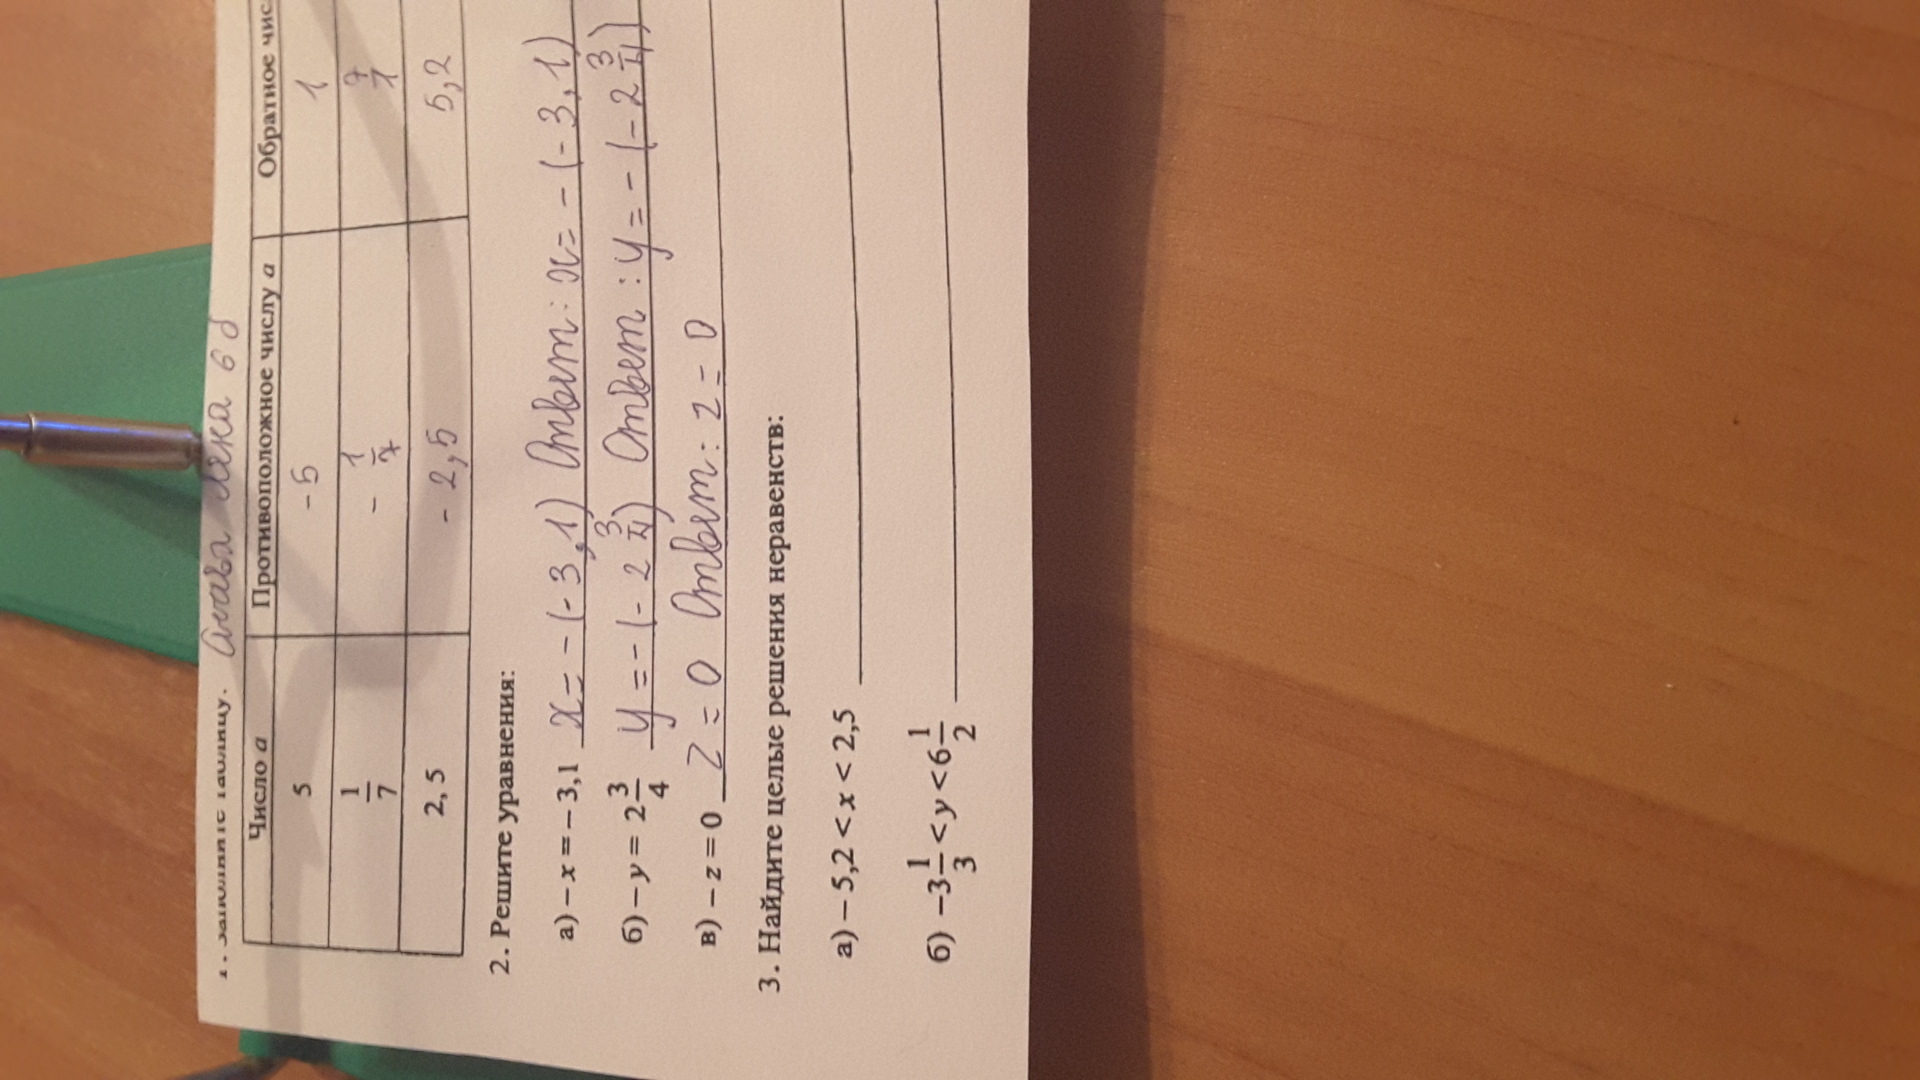 1. Заполните таблицу. 6 б
Число a Противоположное числу a Обратное
5 -5 1
1/7 - 1/7 7/1
2,5 - 2,5 5,2
2. Решите уравнения:
а) − x = − 3,1 x = - (- 3,1) Ответ: x = - (- 3,1)
б) − y = 2 3/4 y = - (- 2 3/4) Ответ: y = - (- 2 3/4)
в) − z = 0 z = 0 Ответ: z = 0
3. Найдите целые решения неравенств:
а) − 5,2 < x < 2,5
б) −3 1/3 < y < 6 1/2